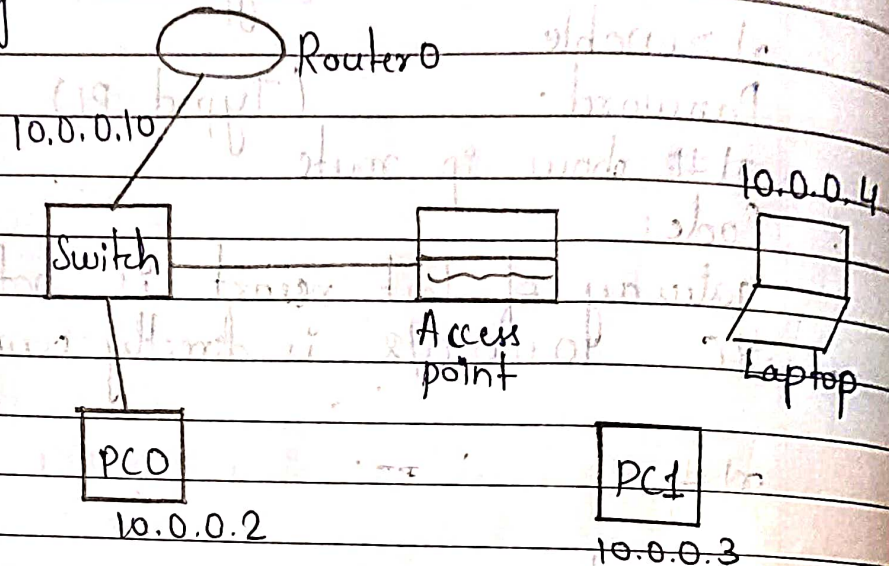 Router0
10.0.0.10
10.0.0.4
Switch
Access
point
Laptop
PC0
PC1
10.0.0.2
10.0.0.3